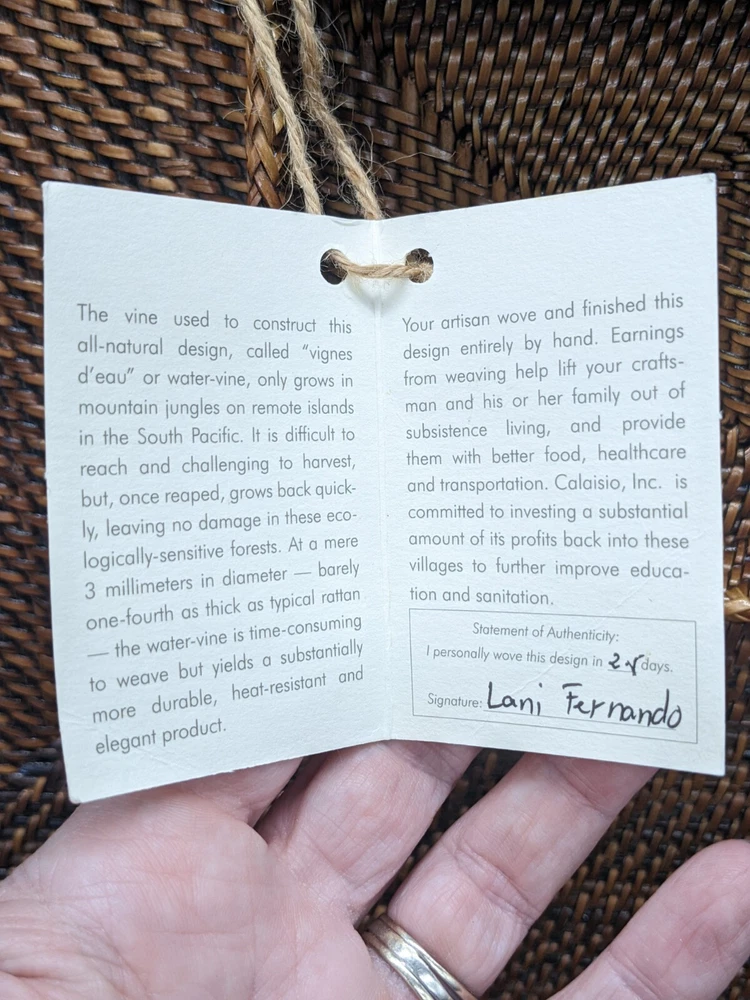 The vine used to construct this
all-natural design, called “vignes
d’eau” or water-vine, only grows in
mountain jungles on remote islands
in the South Pacific. It is difficult to
reach and challenging to harvest,
but, once reaped, grows back quick-
ly, leaving no damage in these eco-
logically-sensitive forests. At a mere
3 millimeters in diameter — barely
one-fourth as thick as typical rattan
— the water-vine is time-consuming
to weave but yields a substantially
more durable, heat-resistant and
elegant product.
Your artisan wove and finished this
design entirely by hand. Earnings
from weaving help lift your crafts-
man and his or her family out of
subsistence living, and provide
them with better food, healthcare
and transportation. Calaisio, Inc. is
committed to investing a substantial
amount of its profits back into these
villages to further improve educa-
tion and sanitation.
Statement of Authenticity:
I personally wove this design in days.
Signature: Lani Fernando